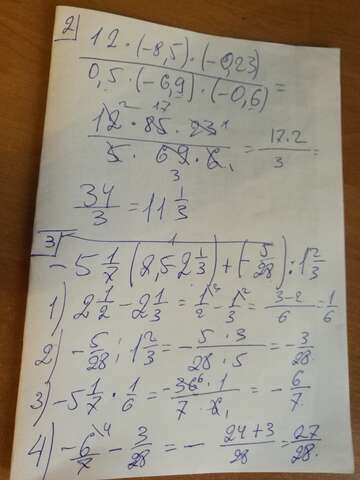 2) 12 · (-8,5) · (-0,23)
0,5 · (-6,9) · (-0,6) =
12² · 85¹⁷ · 23¹
5 · 69₃ · 6₁ = 17·2 / 3 =
34/3 = 11 1/3
3)
-5 1/7 (2,5 2 1/3) + (-5/28) : 1 2/3
1) 2 1/2 - 2 1/3 = 1/2 - 1/3 = 3-2/6 = 1/6
2) -5/28 : 1 2/3 = -5·3/28·5 = -3/28
3) -5 1/7 · 1/6 = -36⁶·1/7·6₁ = -6/7
4) -6/7 \4 - 3/28 = - 24+3/28 = 27/28.